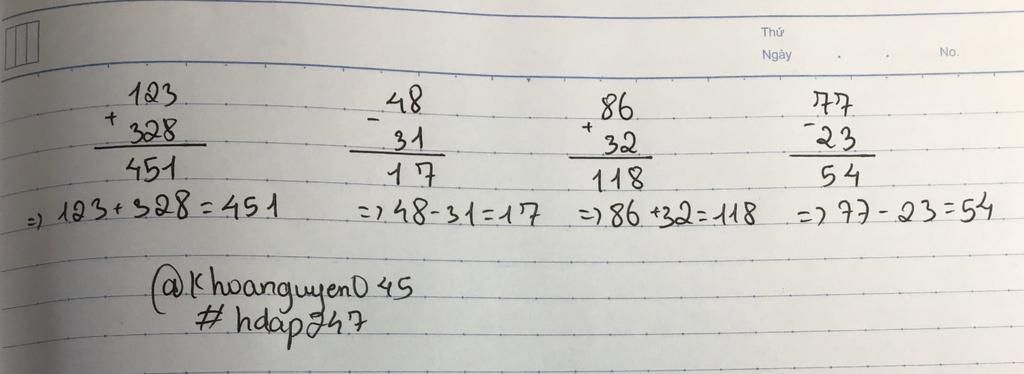 Thứ
Ngày . . No.
123 48 86 77
+ - + -
328 31 32 23
451 17 118 54
=> 123 + 328 = 451 => 48 - 31 = 17 => 86 + 32 = 118 => 77 - 23 = 54
@Khoanguyen045
# hdap247